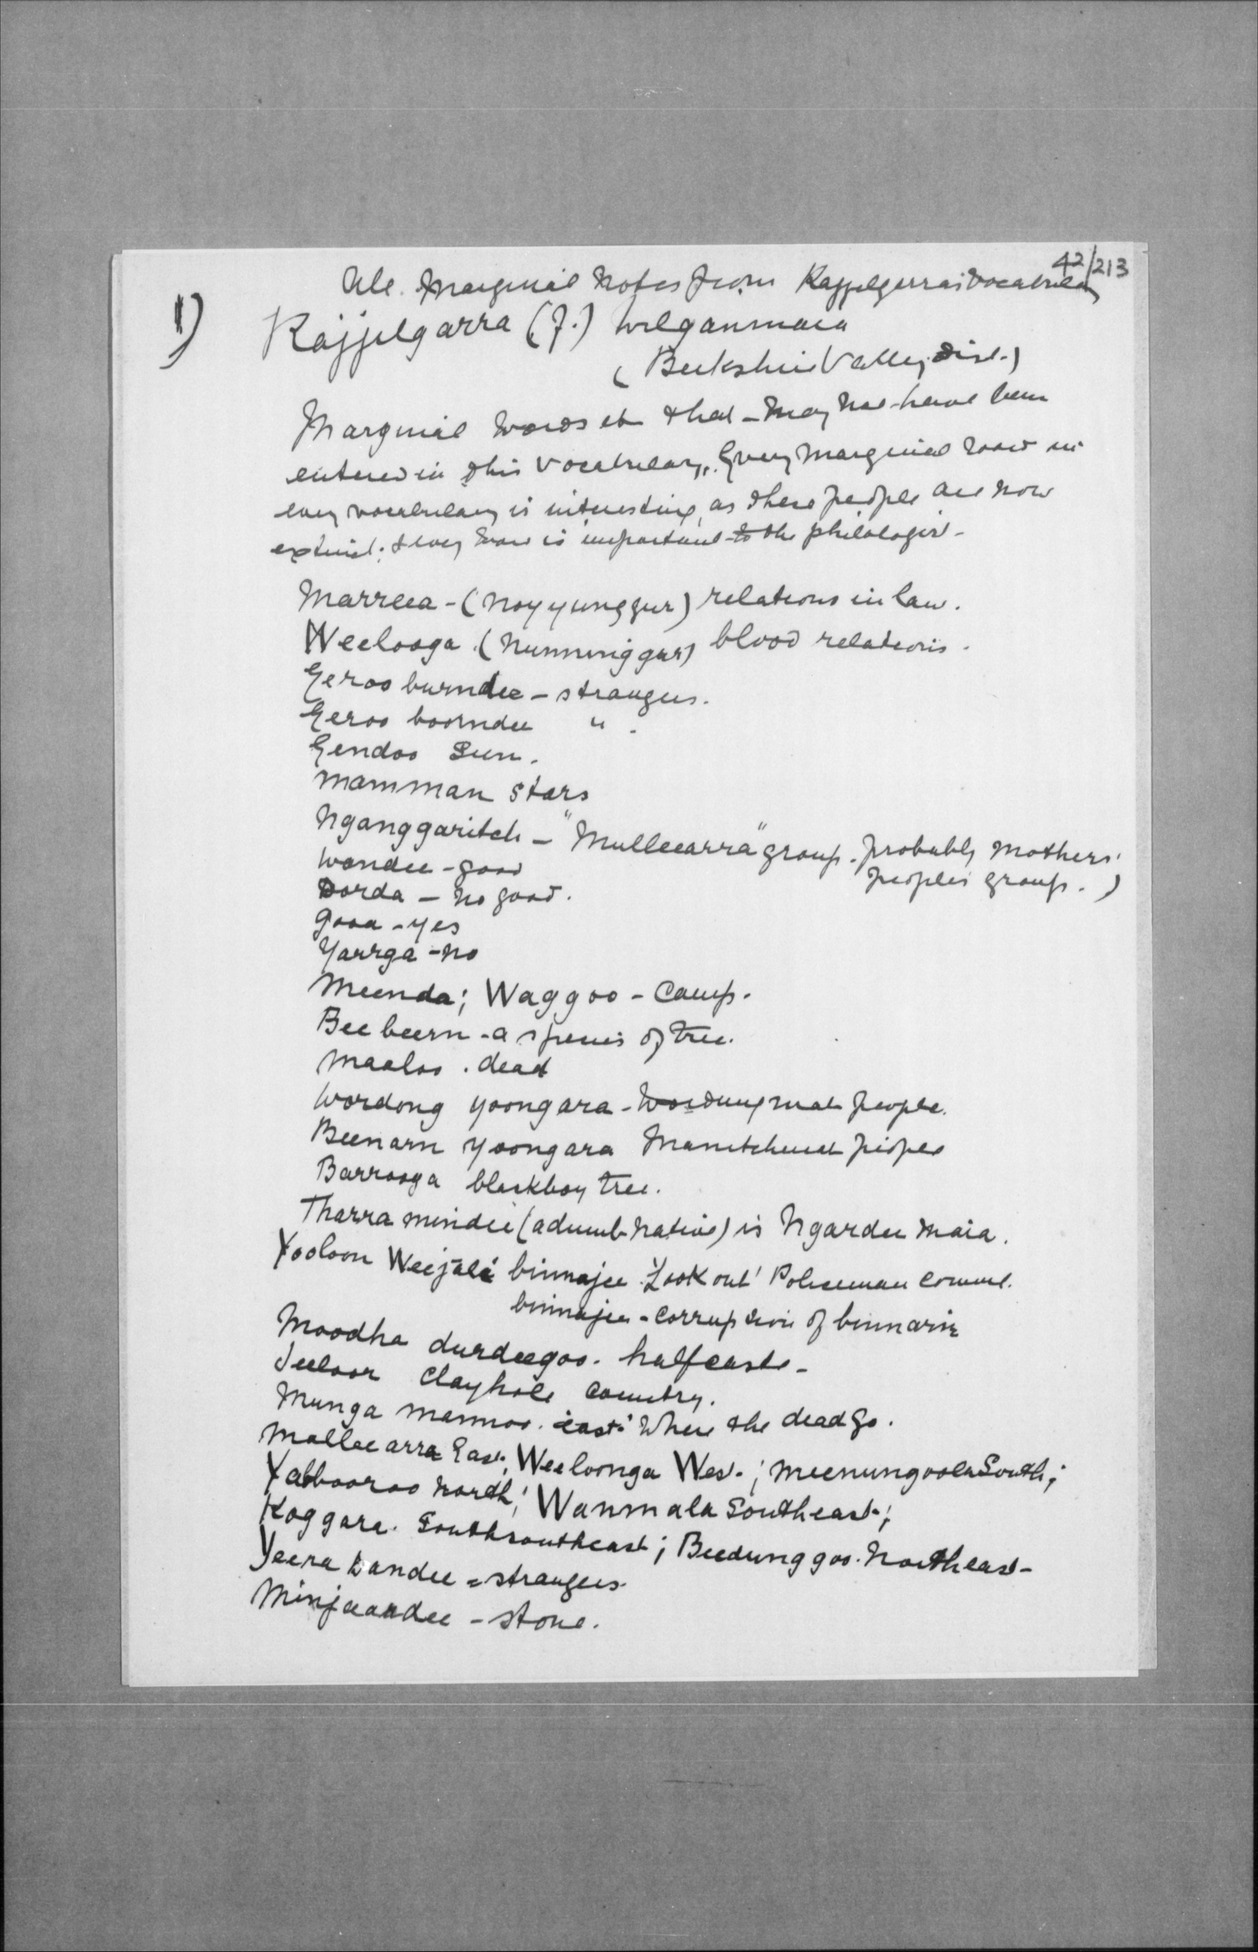 42/213
All Marginal Notes from Kajjelgurra's Vocabulary
1) Kajjelgarra (f.) Wilganmaia
(Berkshire Valley Dist.)
Marginal words etc that may not have been
entered in this Vocabulary. Every Marginal word in
every vocabulary is interesting, as these people are now
extinct; & every word is important to the philologist.
Marreea - (Noyyunggur) relations in law.
Weelooga (Nunninggur) blood relations.
Geroo burndee - strangers.
Geroo boorndee " .
Gendoo Sun.
Mamman stars
Ngangaritch - "Mulleearra" group. probably mothers'
people's group.)
Wandee - good
Dorda - no good.
Gooa - yes
Yarrga - no
Meenda; Waggoo - Camp.
Bee beern - a species of tree.
Maaloo . dead
Wordong yoongara - Wordungmat people.
Beenarn yoongara Manitchmat people
Barrooga blackboy tree.
Tharra mindee (a dumb native) is Ngardee maia.
Yooloon Weejala binnajee 'Look out' Policeman coming.
binnajee - corruption of binnarin
Moodha durdeegoo. halfcaste -
Jeeloor Clayhole country.
Munga mannoo. east. Where the dead go.
Mallee arra East; Weeloonga West.; Meenungoola South;
Yabbooroo North; Wanmala Southeast;
Koggara. Southsoutheast; Beedunggoo. Northeast -
Yeera bandee = strangers.
Minjaardee - stone.